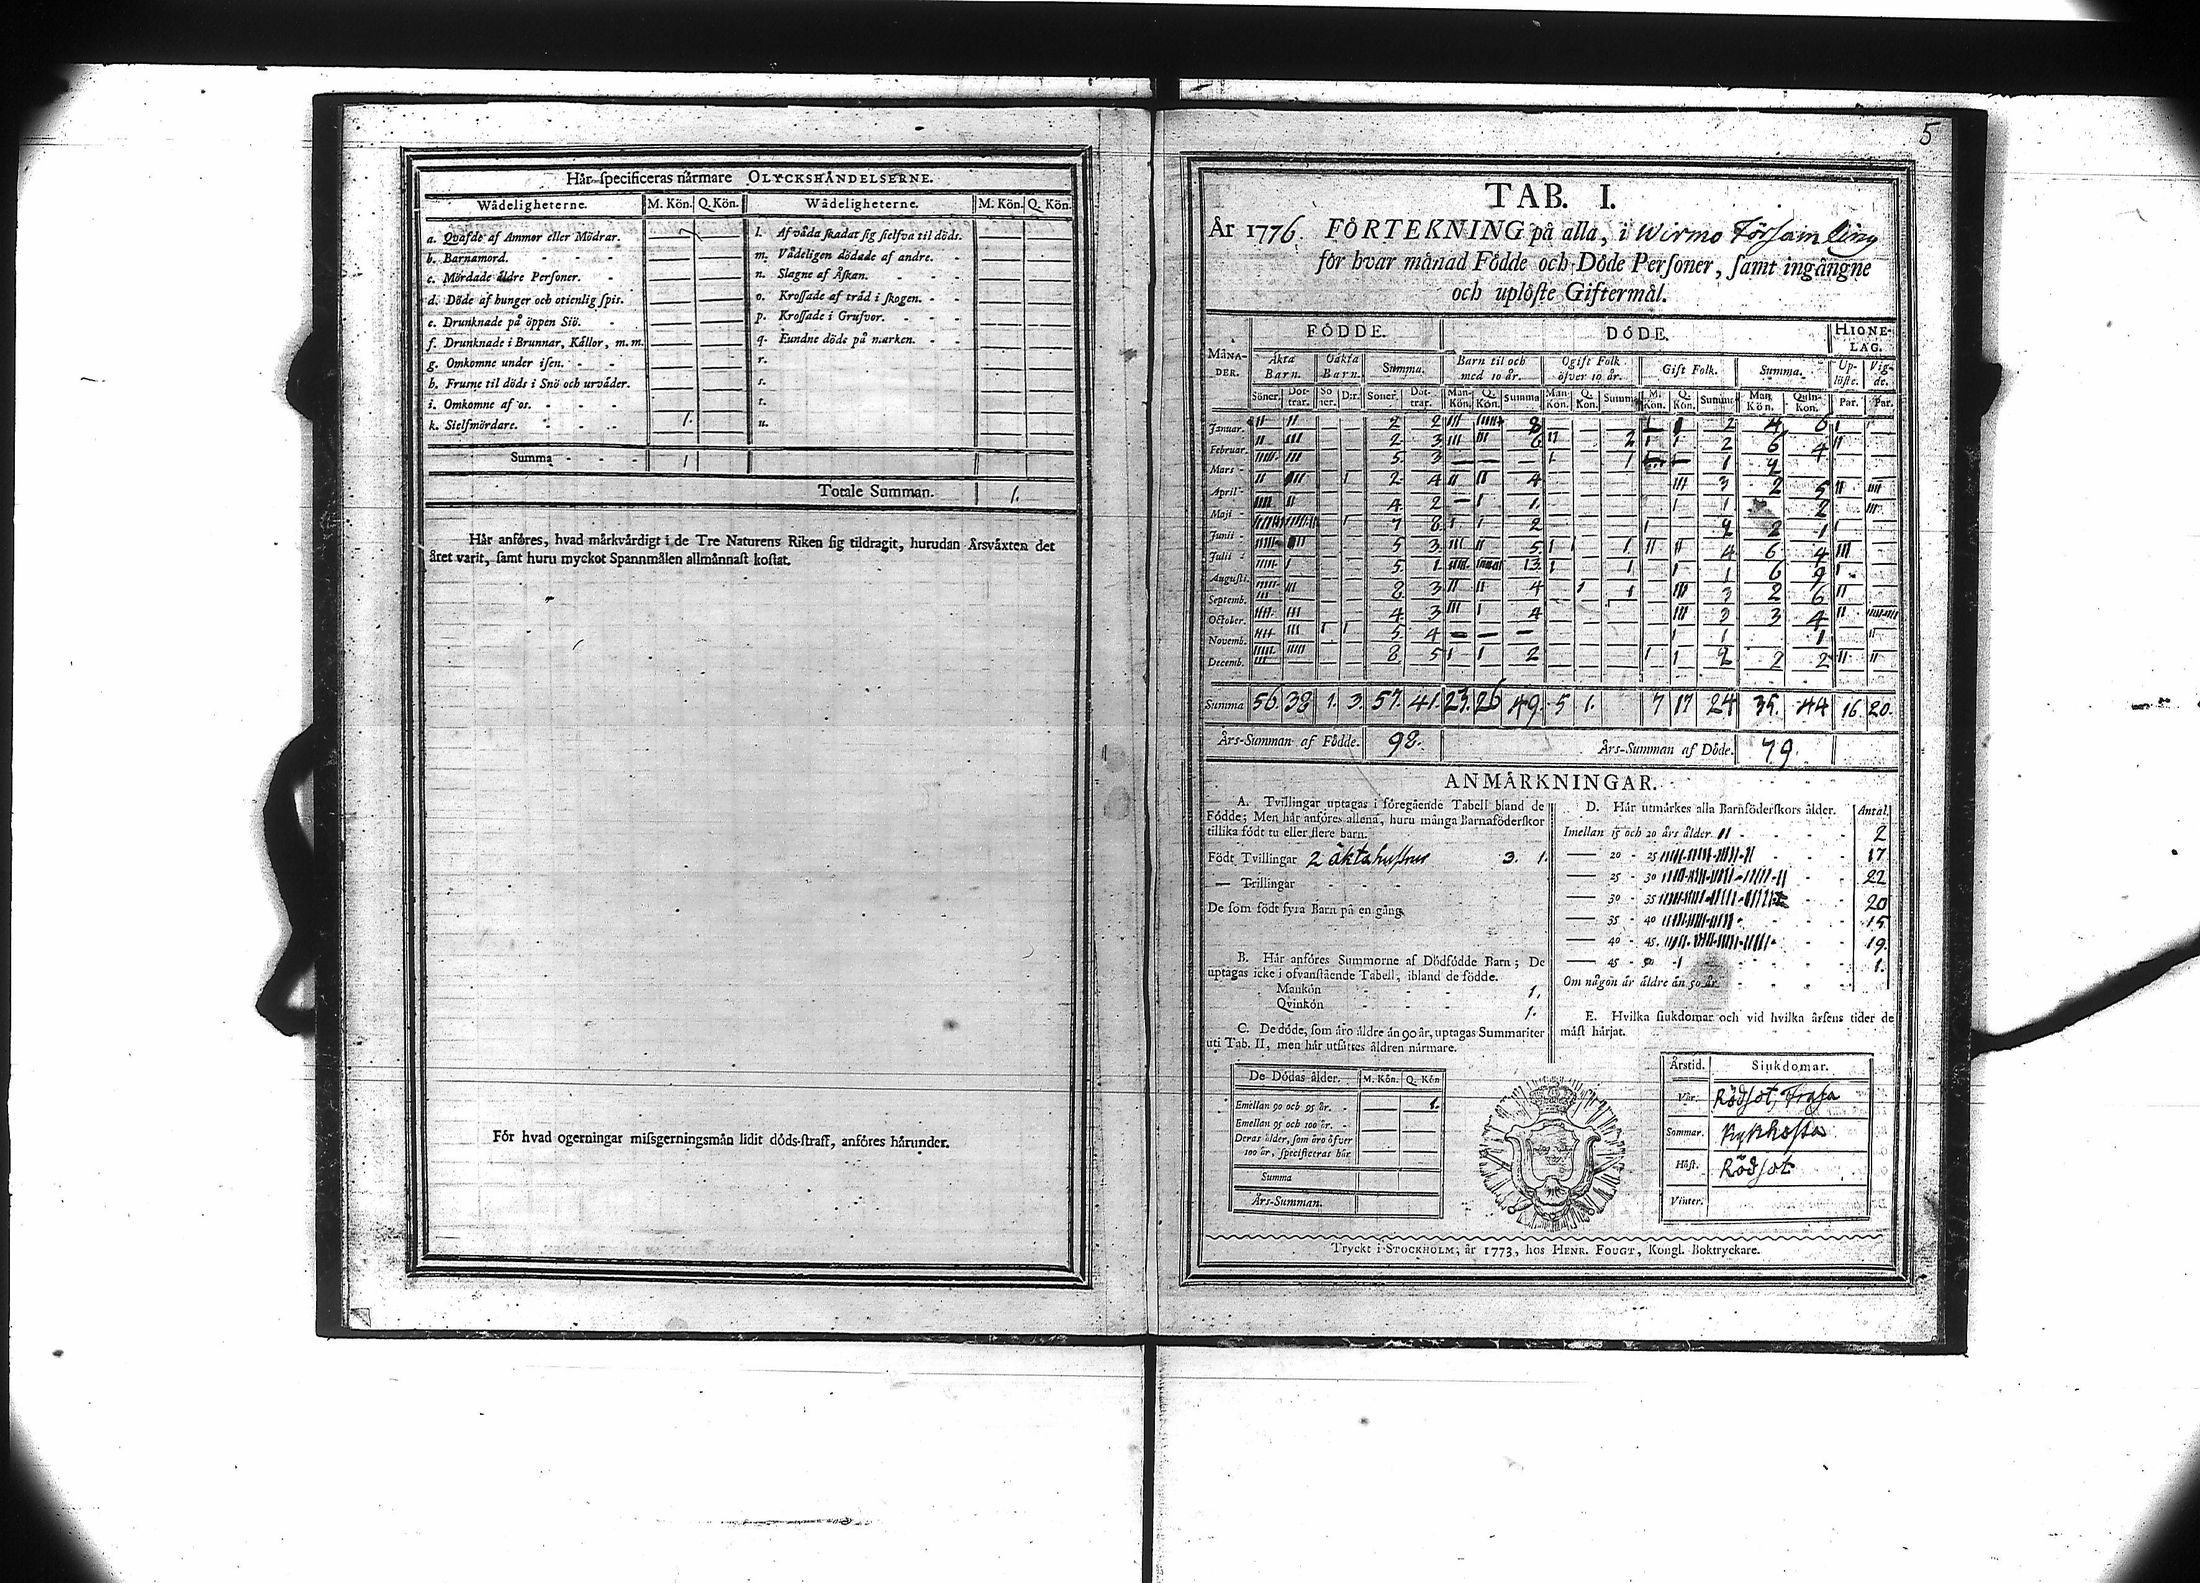 Här specificeras närmare OLYCKSHÄNDELSERNE.
Wådeligheterne. M. Kön. Q. Kön. Wådeligheterne. M. Kön. Q. Kön.
a. Qväfde af Ammor eller Mödrar. l. Af våda skadat sig sielfva til döds.
b. Barnamord. m. Vådeligen dödade af andre.
c. Mördade äldre Personer. n. Slagne af Åskan.
d. Döde af hunger och otienlig spis. o. Krossade af träd i skogen.
e. Drunknade på öppen Siö. p. Krossade i Grufvor.
f. Drunknade i Brunnar, Källor, m. m. q. Fundne döde på marken.
g. Omkomne under isen. r.
h. Frusne til döds i Snö och urväder. s.
i. Omkomne af os. t.
k. Sielfmördare. 1. u.
Summa 1
Totale Summan. 1.
Här anföres, hvad märkvärdigt i de Tre Naturens Riken sig tildragit, hurudan Årsväxten det
året varit, samt huru myckot Spannmålen allmännast kostat.
För hvad ogerningar missgerningsmän lidit döds-straff, anföres härunder.
5
TAB. I.
År 1776. FÖRTEKNING på alla, i Wirmo Församling
för hvar månad Födde och Döde Personer, samt ingångne
och uplöste Giftermål.
FÖDDE. DÖDE. HIONE-
LAG.
MÅNA-
DER. Äkta
Barn. Oäkta
Barn. Summa. Barn til och
med 10 år. Ogift Folk
öfver 10 år. Gift Folk. Summa. Up-
löste. Vig-
de.
Söner. Döt-
trar. Sö
ner. D:r. Söner. Döt-
trar. Man-
Kön. Q.
Kön. Summa Man-
Kön. Q.
Kön. Summa M.
Kön. Q.
Kön. Summa Man
Kön. Quin-
Kon. Par. Par.
Januar. 2 2 8 2 4
Februar. 2 3 6 2 2 6 4
Mars 5 3 1 1 2
April 2 4 4 3 2 5
Maji 4 2 1. 1 2
Junii 7 8. 2 2 2 1
Julii 5 3 5 1 4 6 4
Augusti. 5. 1. 13. 1 1 6 9
Septemb. 8 3 4 1 3 2 6
October. 4 3 4 3 3 4
Novemb. 5 4 1 1
Decemb. 8 5 2 2 2 2
Summa 56. 38 1. 3. 57. 41. 23. 26 49. 5 1. 7 17 24 35. 44 16. 20.
Års-Summan af Födde. 98. Års-Summan af Döde. 79.
ANMÄRKNINGAR.
A. Tvillingar uptagas i föregående Tabell bland de
Födde; Men här anföres allena, huru många Barnaföderskor
tillika födt tu eller flere barn.
Födt Tvillingar 2 äkta hustrur 3. 1.
— Trillingar
De som födt fyra Barn på en gång.
B. Här anföres Summorne af Dödfödde Barn; De
uptagas icke i ofvanstående Tabell, ibland de födde.
Mankön 1.
Qvinkön 1.
C. De döde, som äro äldre än 90 år, uptagas Summariter
uti Tab. II, men här utsättes åldren närmare.
De Dödas ålder. M. Kön. Q. Kön
Emellan 90 och 95 år. 1.
Emellan 95 och 100 år.
Deras ålder, som äro öfver
100 år, specificeras här
Summa
Års-Summan.
D. Här utmärkes alla Barnföderskors ålder. Antal.
Imellan 15 och 20 års ålder 2
— 20 - 25 17
— 25 - 30 22
— 30 - 35 20
— 35 - 40 15
— 40 - 45. 19.
— 45 - 50 1.
Om någon är äldre än 50 år.
E. Hvilka siukdomar och vid hvilka årsens tider de
mäst härjat.
Årstid. Siukdomar.
Vår. Rödsot, Frasa
Sommar. Kykhosta
Höst. Rödsot
Vinter.
Tryckt i STOCKHOLM, år 1773, hos HENR. FOUGT, Kongl. Boktryckare.